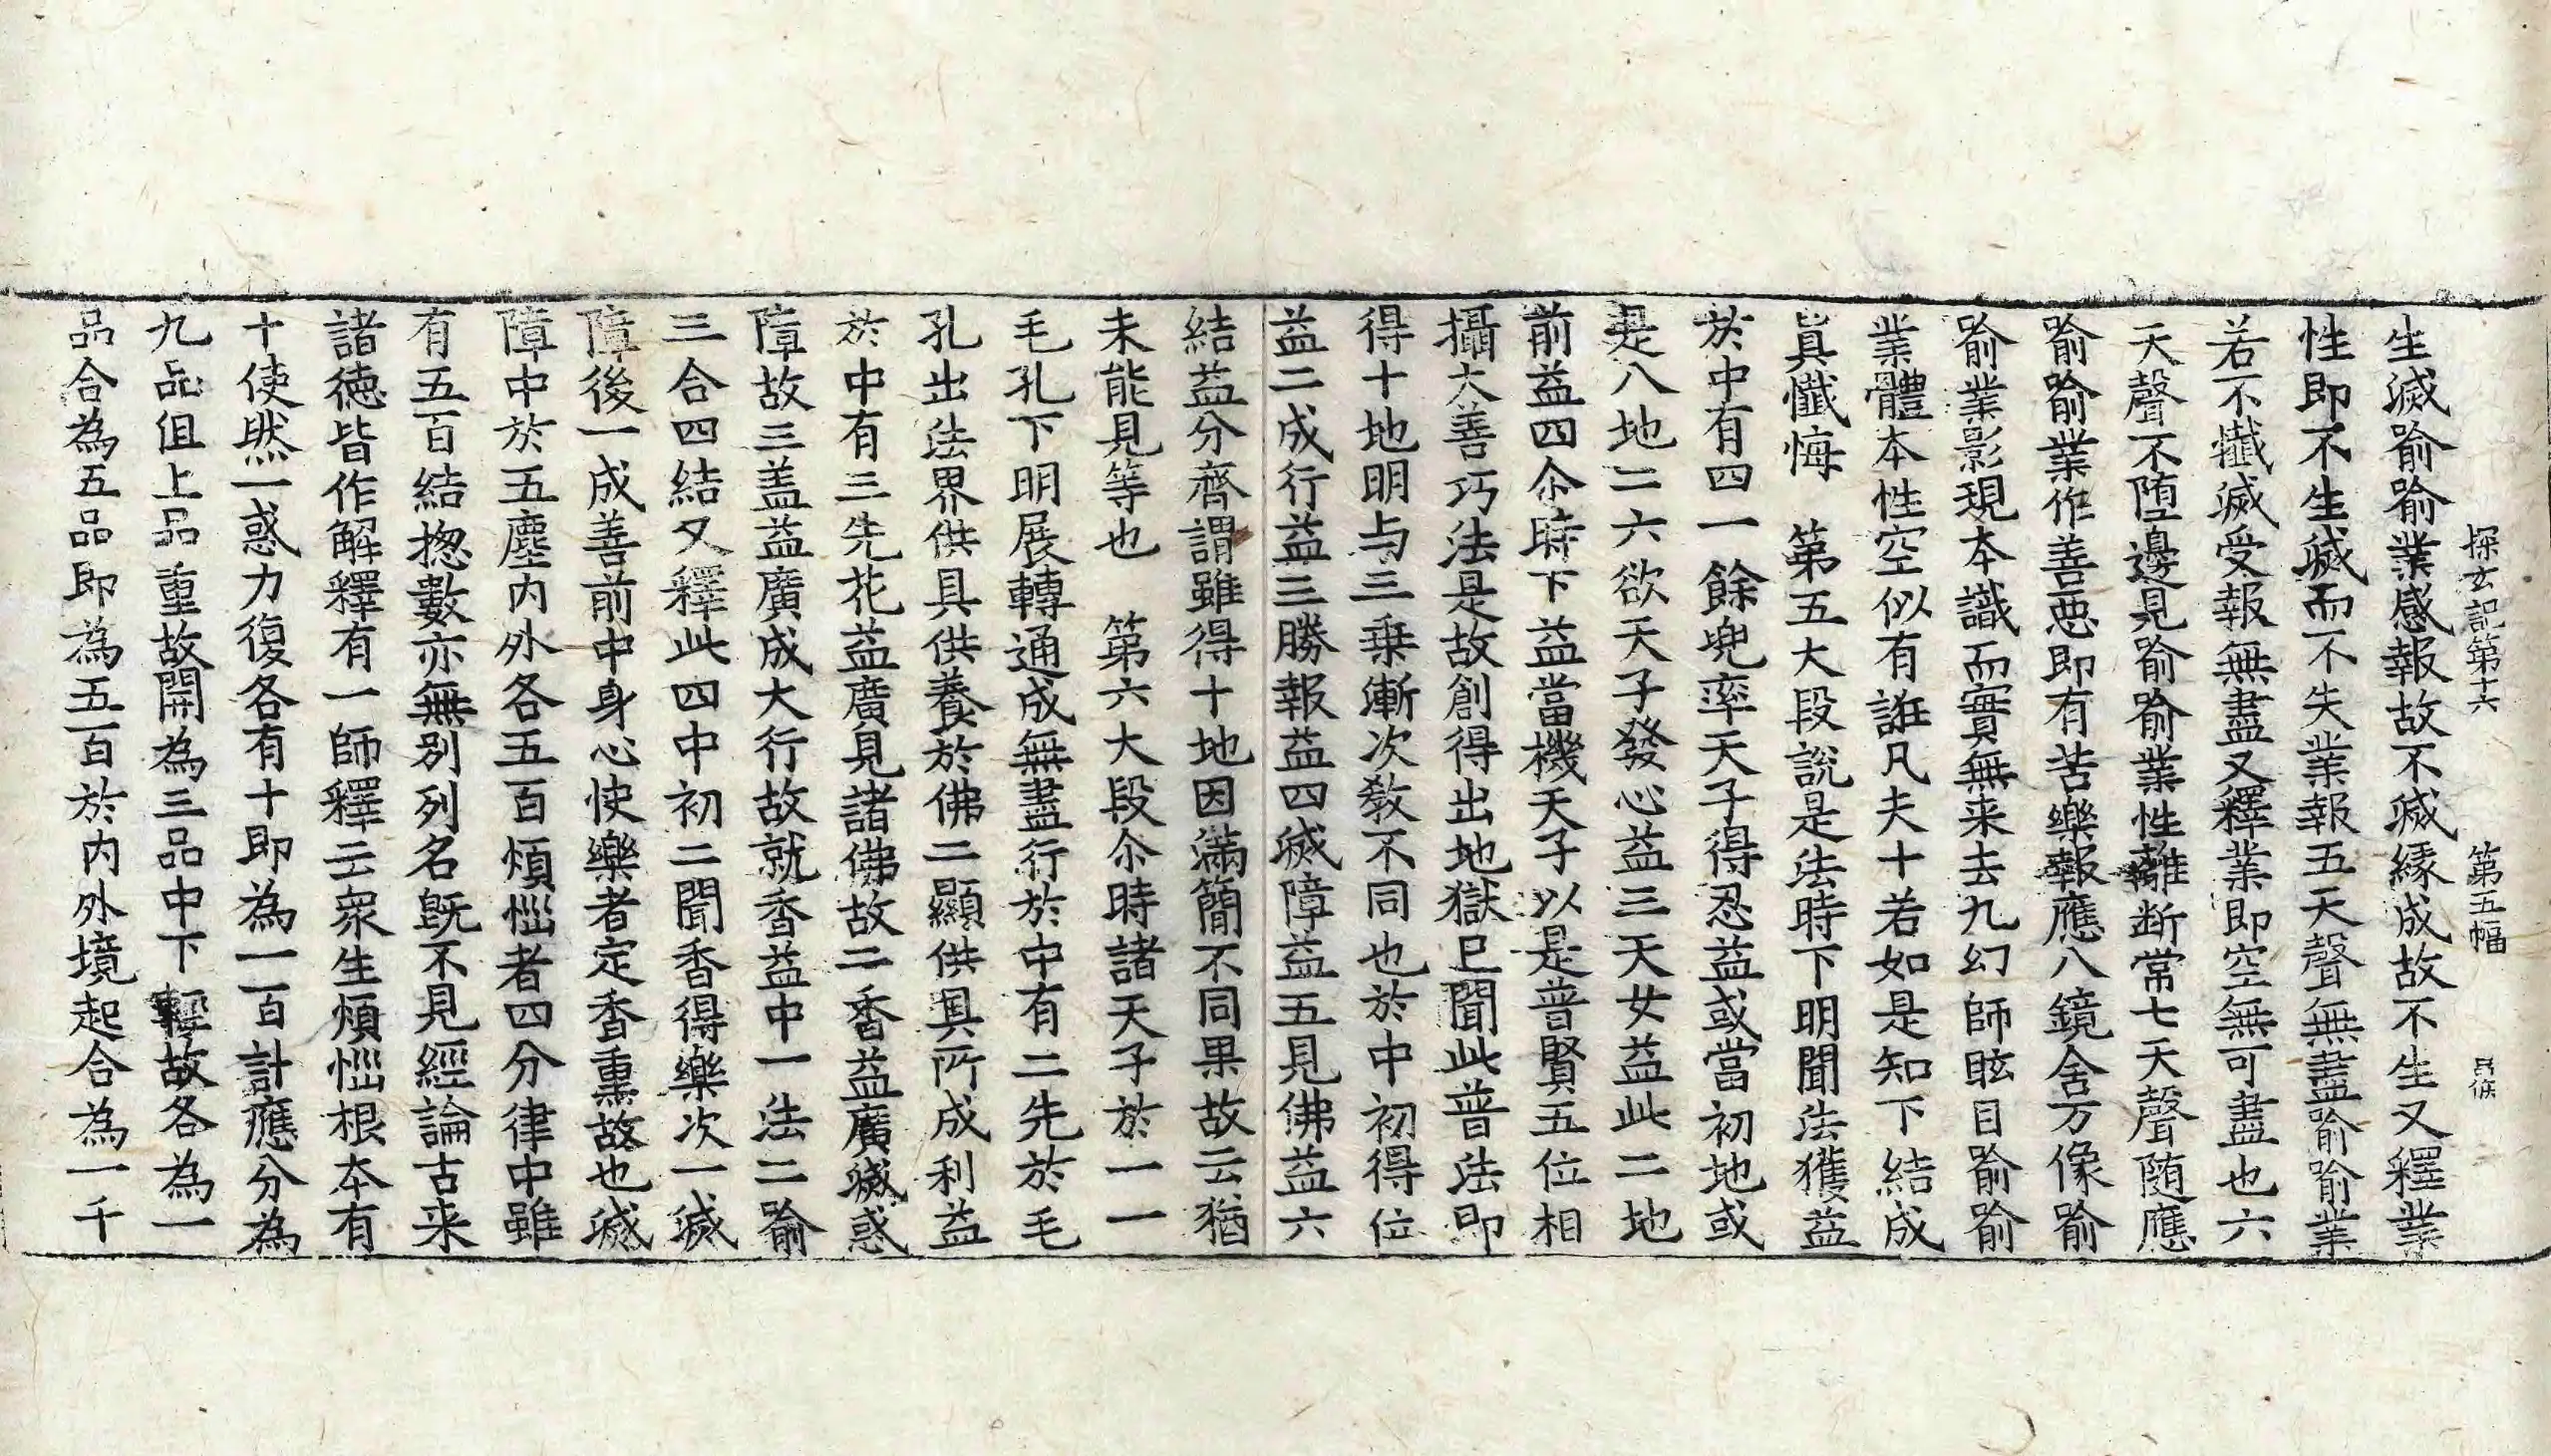 探玄記第十六 第五幅
生滅喻喻業感報故不滅緣成故不生又釋業
性即不生滅而不失業報五天聲無盡喻喻業
若不懺滅受報無盡又釋業即空無可盡也六
天聲不墮邊見喻喻業性離断常七天聲随應
喻喻業作善惡即有苦樂報應八鏡含万像喻
喻業影現本識而實無来去九幻師眩目喻喻
業體本性空似有誑凡夫十若如是知下結成
真懺悔 第五大段說是法時下明聞法獲益
於中有四一餘兜率天子得忍益或當初地或
是八地二六欲天子發心益三天女益此二地
前益四尒時下益當機天子以是普賢五位相
攝大善巧法是故創得出地獄已聞此普法即
得十地明与三乗漸次教不同也於中初得位
益二成行益三勝報益四滅障益五見佛益六
結益分齊謂雖得十地因滿簡不同果故云猶
未能見等也 第六大段尒時諸天子於一一
毛孔下明展轉通成無盡行於中有二先於毛
孔出法界供具供養於佛二顯供具所成利益
於中有三先花益廣見諸佛故二香益廣滅惑
障故三盖益廣成大行故就香益中一法二喻
三合四結又釋此四中初二聞香得樂次一滅
障後一成善前中身心快樂者定香熏故也滅
障中於五塵内外各五百煩惱者四分律中雖
有五百結揔數亦無別列名旣不見經論古来
諸徳皆作解釋有一師釋云衆生煩惱根本有
十使然一惑力復各有十即為一百計應分為
九品但上品重故開為三品中下輕故各為一
品合為五品即為五百於内外境起合為一千